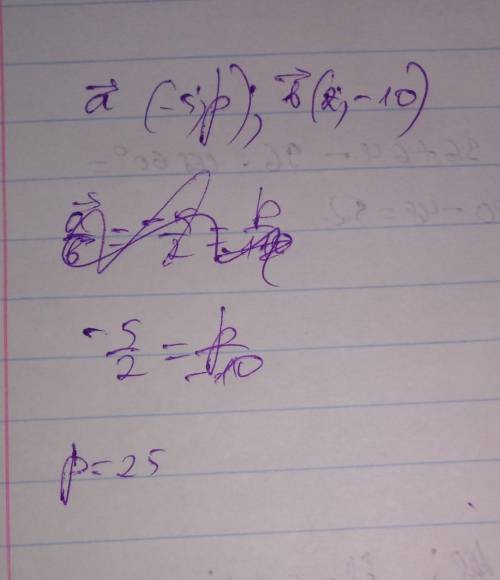 a⃗ (-5; p); b⃗ (2; -10)
-5/2 = p/-10
p = 25